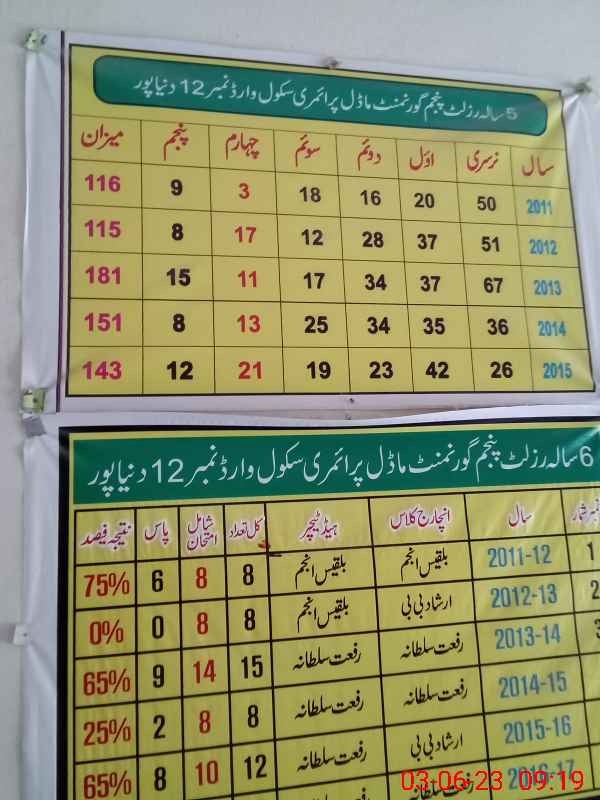 5 سالہ رزلٹ پنجم گورنمنٹ ماڈل پرائمری سکول وارڈ نمبر 12 دنیا پور
سال نرسری اوّل دوئم سوئم چہارم پنجم میزان
2011 50 20 16 18 3 9 116
2012 51 37 28 12 17 8 115
2013 67 37 34 17 11 15 181
2014 36 35 34 25 13 8 151
2015 26 42 23 19 21 12 143
6 سالہ رزلٹ پنجم گورنمنٹ ماڈل پرائمری سکول وارڈ نمبر 12 دنیا پور
نمبر شمار سال انچارج کلاس ہیڈ ٹیچر کل تعداد شامل امتحان پاس نتیجہ فیصد
1 2011-12 بلقیس انجم بلقیس انجم 8 8 6 75%
2 2012-13 ارشاد بی بی بلقیس انجم 8 8 0 0%
3 2013-14 رفعت سلطانہ رفعت سلطانہ 15 14 9 65%
2014-15 رفعت سلطانہ رفعت سلطانہ 8 8 2 25%
2015-16 ارشاد بی بی رفعت سلطانہ 12 10 8 65%
2016-17
03-06-23 09:19